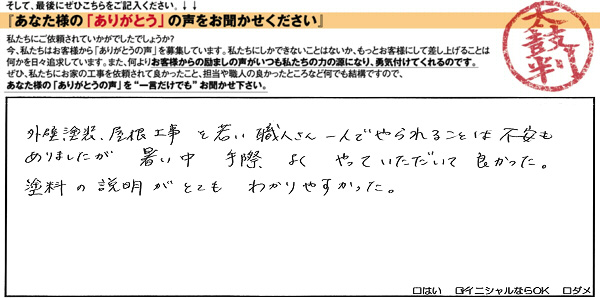 そして、最後にぜひこちらをご記入ください。↓↓
『あなた様の「ありがとう」の声をお聞かせください』
私たちにご依頼されていかがでしたでしょうか?
今、私たちはお客様から「ありがとうの声」を募集しています。私たちにしかできないことはないか、もっとお客様にして差し上げることは
何かを日々追求しています。また、何よりお客様からの励ましの声がいつも私たちの力の源になり、勇気付けてくれるのです。
ぜひ、私たちにお家の工事を依頼されて良かったこと、担当や職人の良かったところなど何でも結構ですので、
あなた様の「ありがとうの声」を“一言だけでも”お聞かせ下さい。
太鼓判
外壁塗装、屋根工事 と若い職人さん一人でやられることは不安も
ありましたが 暑い中 手際 よく やっていただいて良かった。
塗料の説明がとても わかりやすかった。
□はい ☑イニシャルならOK □ダメ